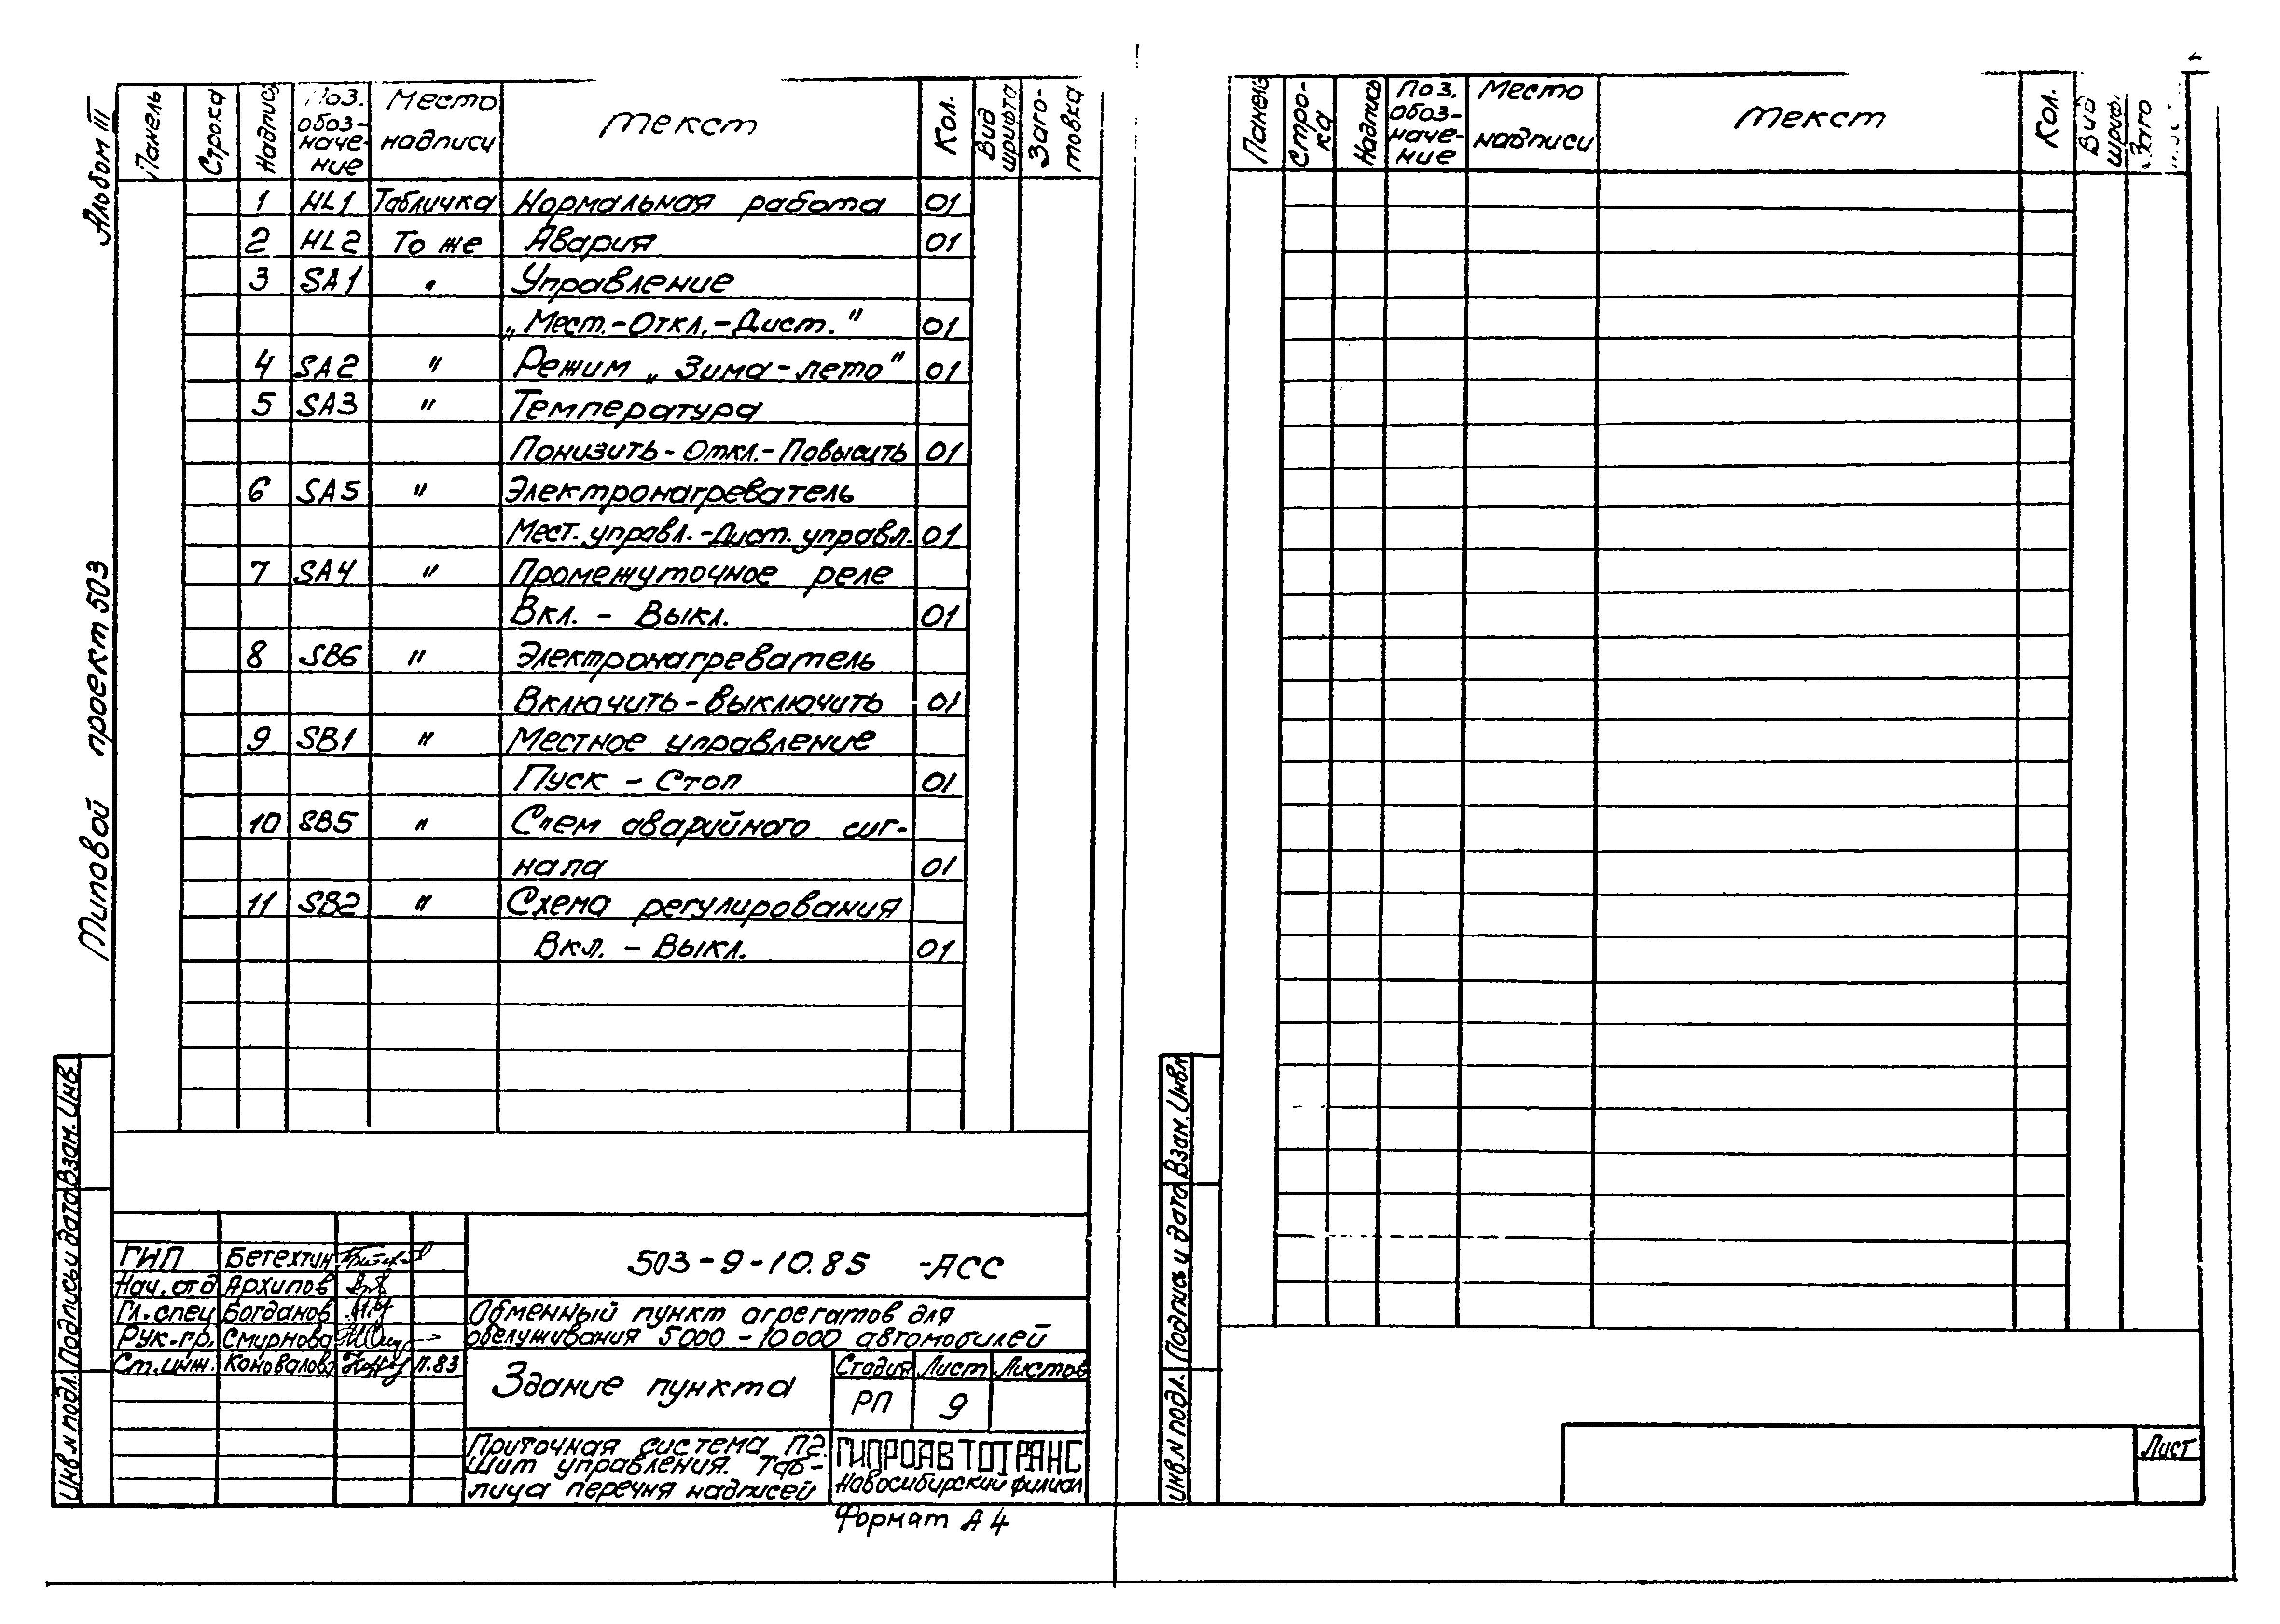 Альбом III
Типовой проект 503
Панель
Строка
Надпись
Поз. обоз-
наче-
ние
Место
надписи
Текст
Кол.
Вид
шрифта
Заго-
товка
1 HL1 Табличка Нормальная работа 01
2 HL2 То же Авария 01
3 SA1 " Управление
„Мест.-Откл.-Дист." 01
4 SA2 " Режим „Зима-лето" 01
5 SA3 " Температура
Понизить-Откл.-Повысить 01
6 SA5 " Электронагреватель
Мест. управл.-Дист. управл. 01
7 SA4 " Промежуточное реле
Вкл. - Выкл. 01
8 SB6 " Электронагреватель
Включить-Выключить 01
9 SB1 " Местное управление
Пуск - Стоп 01
10 SB5 " Съем аварийного сиг-
нала 01
11 SB2 " Схема регулирования
Вкл. - Выкл. 01
Взам. Инв
Подпись и дата
Инв.N подл.
ГИП Бетехтин
Нач. отд Архипов
Гл. спец Богданов
Рук. гр. Смирнова
Ст. инж. Коновалова 11.83
503-9-10.85 -АСС
Обменный пункт агрегатов для
обслуживания 5000-10000 автомобилей
Здание пункта
Стадия Лист Листов
РП 9
Приточная система П2.
Шит управления. Таб-
лица перечня надписей
ГИПРОАВТОТРАНС
Новосибирский филиал
Формат А4
Панель
Стро-
ка
Надпись
Поз.
обоз-
наче-
ние
Место
надписи
Текст
Кол.
Вид
шриф.
Заго
Взам. Инв.N
Подпись и дата
Инв.N подл.
Лист